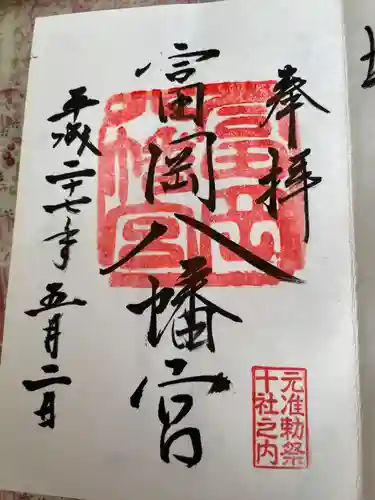 奉拝
富岡八幡宮
平成二十七年五月二日
富岡
八幡宮
元准勅祭
十社之内